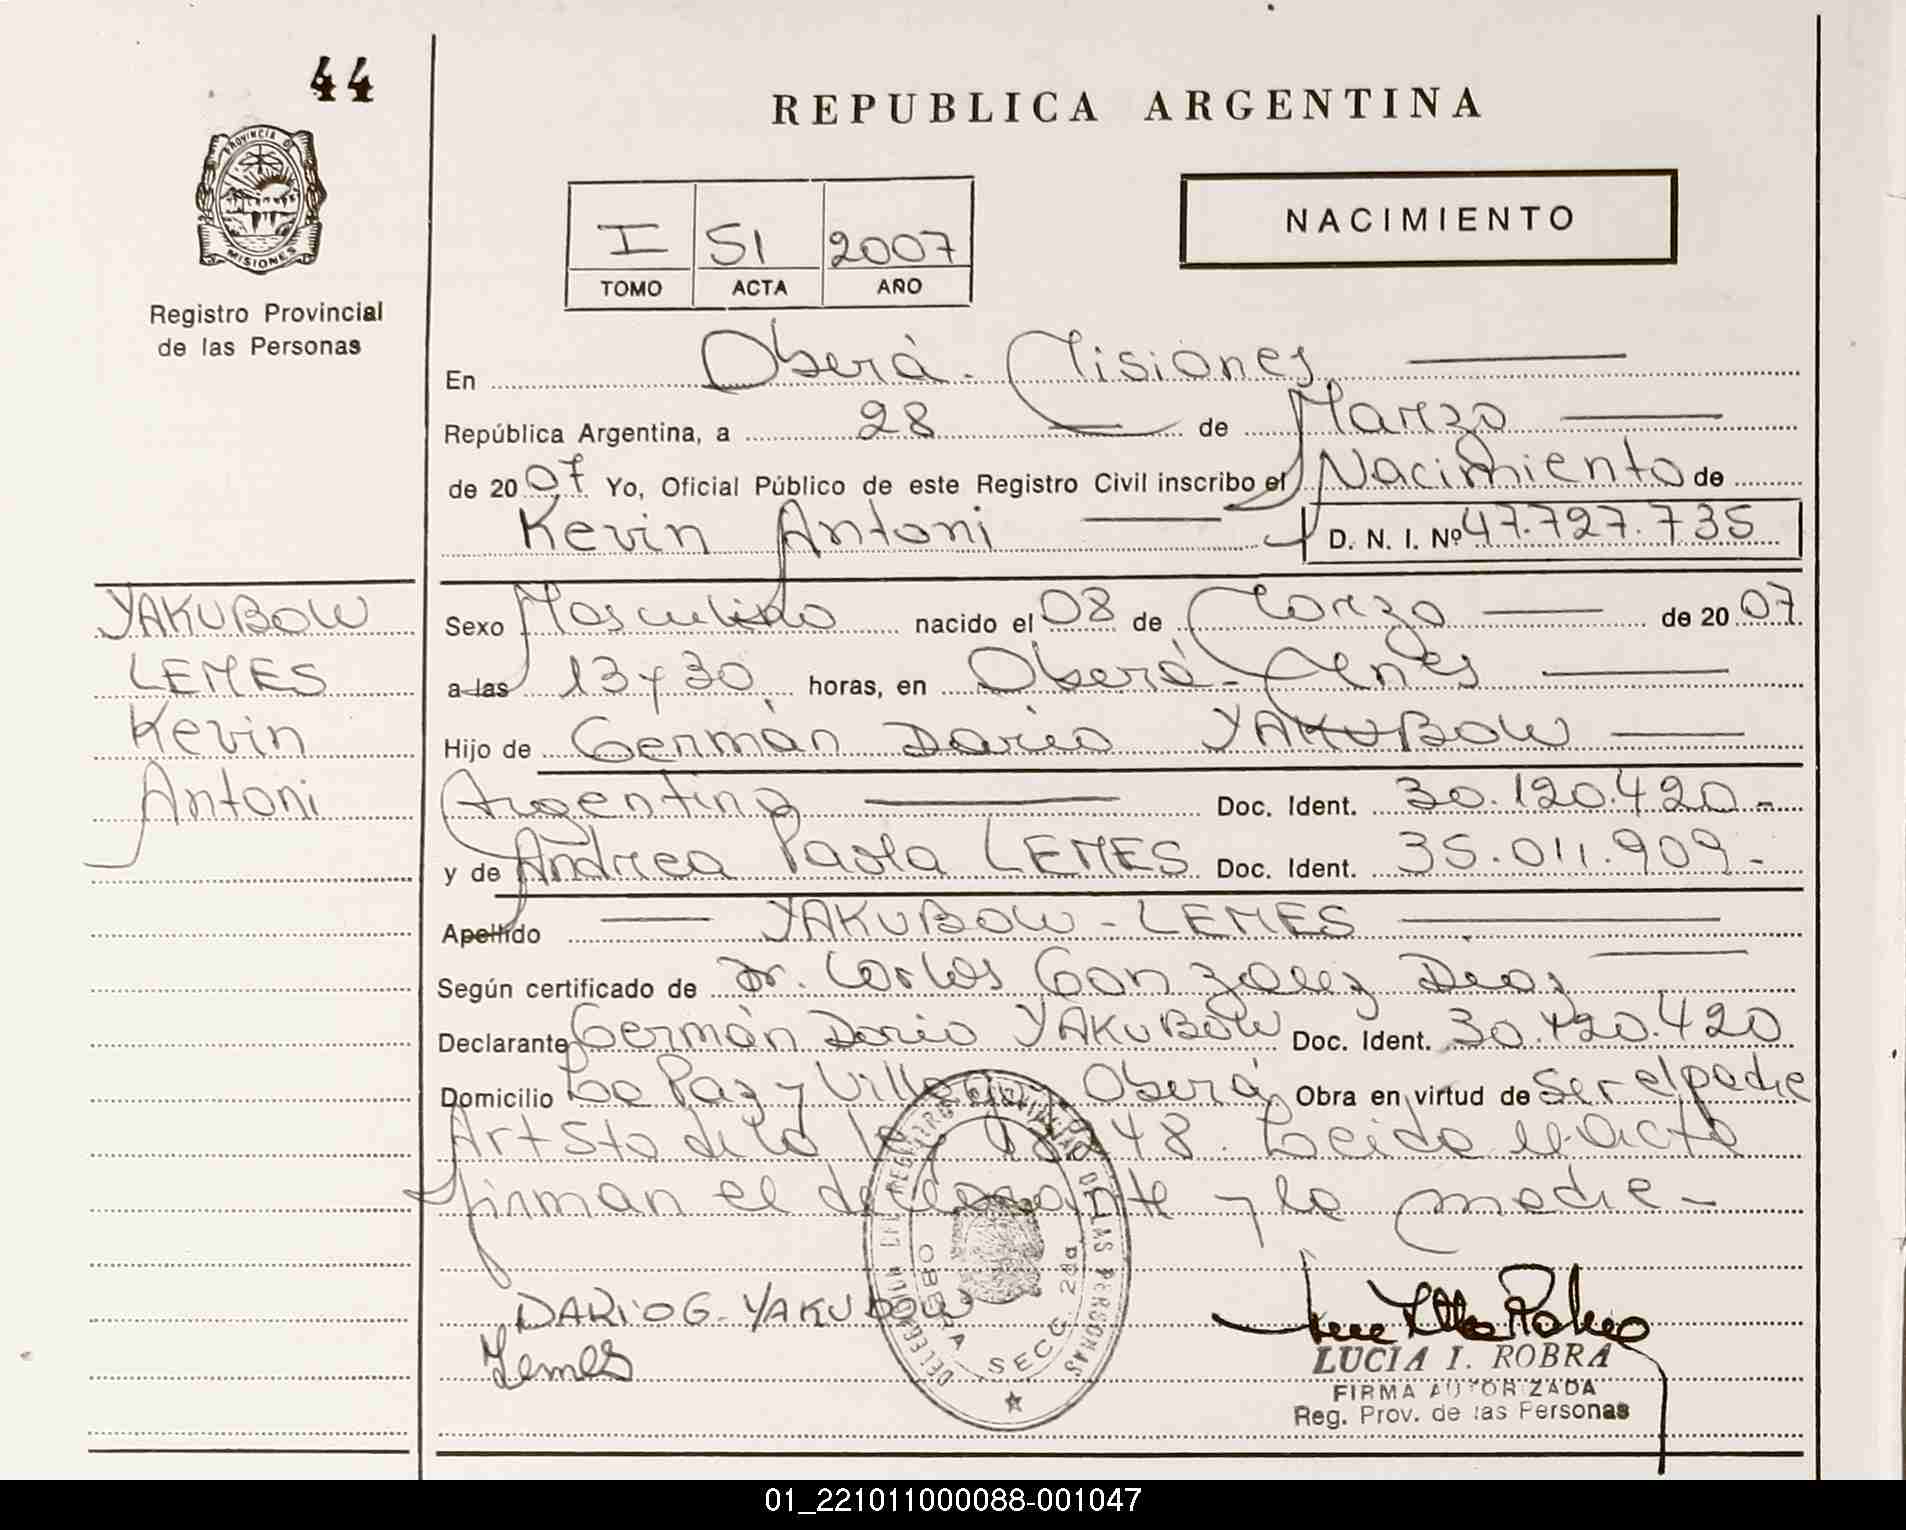 44
REPUBLICA ARGENTINA
PROVINCIA DE
MISIONES
Registro Provincial
de las Personas
I 51 2007
TOMO ACTA AÑO
NACIMIENTO
En Oberá - Misiones
República Argentina, a 28 de Marzo
de 2007 Yo, Oficial Público de este Registro Civil inscribo el Nacimiento de
Kevin Antoni D. N. I. Nº 47.727.735
YAKUBOW
LEMES
Kevin
Antoni
Sexo Masculino nacido el 08 de Marzo de 2007
a las 13 y 30 horas, en Oberá - Mnes
Hijo de Germán Dario YAKUBOW
Argentino Doc. Ident. 30.120.420-
y de Andrea Paola LEMES Doc. Ident. 35.011.909-
Apellido YAKUBOW - LEMES
Según certificado de Dr. Carlos Gonzalez Diaz
Declarante Germán Dario YAKUBOW Doc. Ident. 30.120.420
Domicilio La Paz y Oberá Obra en virtud de ser el padre
Art 5to de la 18248. Leida el acta
firman el declarante y la madre-
DARIO G. YAKUBOW
Lemes
DELEGACION DEL REGISTRO PROVINCIAL DE LAS PERSONAS
OBERA SECC. 2da
LUCIA I. ROBRA
FIRMA AUTORIZADA
Reg. Prov. de las Personas
01_221011000088-001047